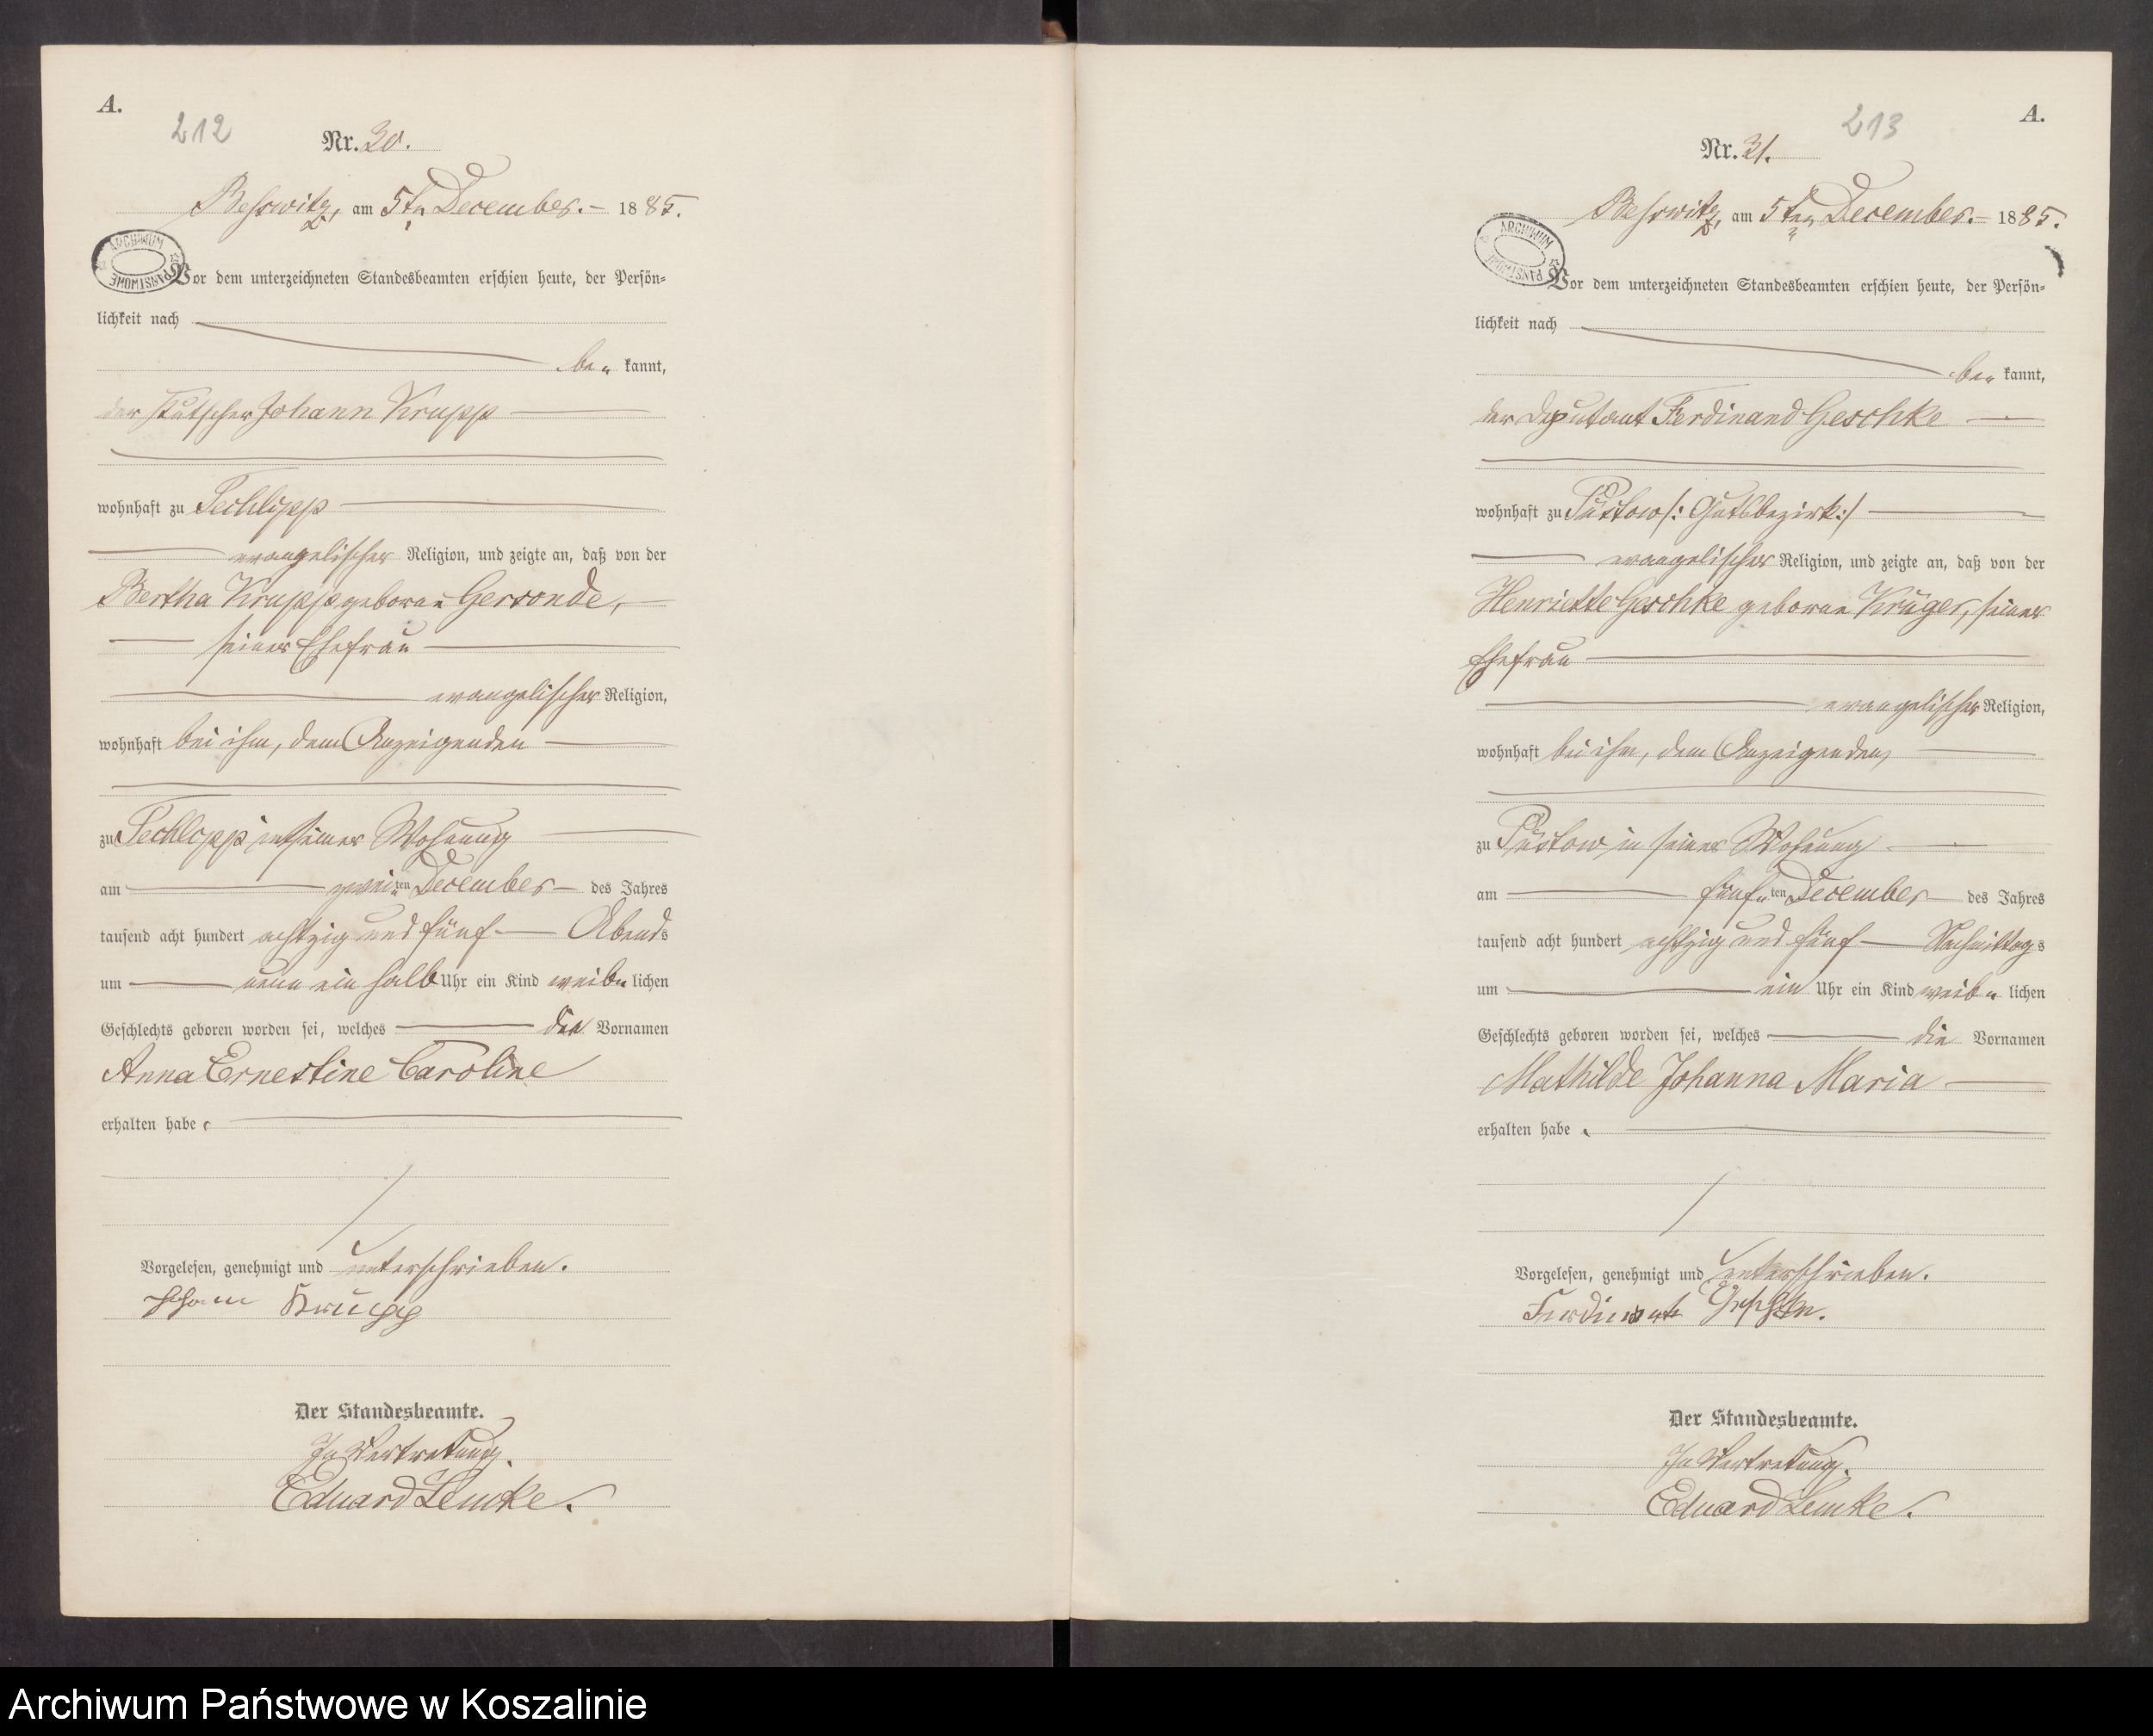 A.
212
Nr. 30.
Beßwitz, am 5ten December. 1885.
ARCHIWUM PAŃSTWOWE
Vor dem unterzeichneten Standesbeamten erschien heute, der Persön-
lichkeit nach
be- kannt,
der Kutscher Johann Krupp
wohnhaft zu Techlipp
evangelischer Religion, und zeigte an, daß von der
Bertha Krupp geborne Gersonde,
seiner Ehefrau
evangelischer Religion,
wohnhaft bei ihm, dem Anzeigenden
zu Techlipp in seiner Wohnung
am zweiten December des Jahres
tausend acht hundert achtzig und fünf Abends
um neun ein halb Uhr ein Kind weib- lichen
Geschlechts geboren worden sei, welches die Vornamen
Anna Ernestine Caroline
erhalten habe
Vorgelesen, genehmigt und unterschrieben.
Krupp
Der Standesbeamte.
In Vertretung.
Eduard Lemke.
A.
213
Nr. 31.
Beßwitz, am 5ten December. 1885.
ARCHIWUM PAŃSTWOWE
Vor dem unterzeichneten Standesbeamten erschien heute, der Persön-
lichkeit nach
be- kannt,
der Deputant Ferdinand Geschke
wohnhaft zu Püstow /: Gutsbezirk :/
evangelischer Religion, und zeigte an, daß von der
Henriette Geschke geborne Krüger, seiner
Ehefrau
evangelischer Religion,
wohnhaft bei ihm, dem Anzeigenden,
zu Püstow in seiner Wohnung
am fünften December des Jahres
tausend acht hundert achtzig und fünf Nachmittags
um ein Uhr ein Kind weib- lichen
Geschlechts geboren worden sei, welches die Vornamen
Mathilde Johanna Maria
erhalten habe
Vorgelesen, genehmigt und unterschrieben.
Der Standesbeamte.
In Vertretung.
Eduard Lemke.
Archiwum Państwowe w Koszalinie